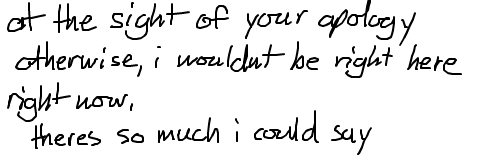 at the sight of your apology
otherwise, i wouldnt be right here
right now.
theres so much i could say